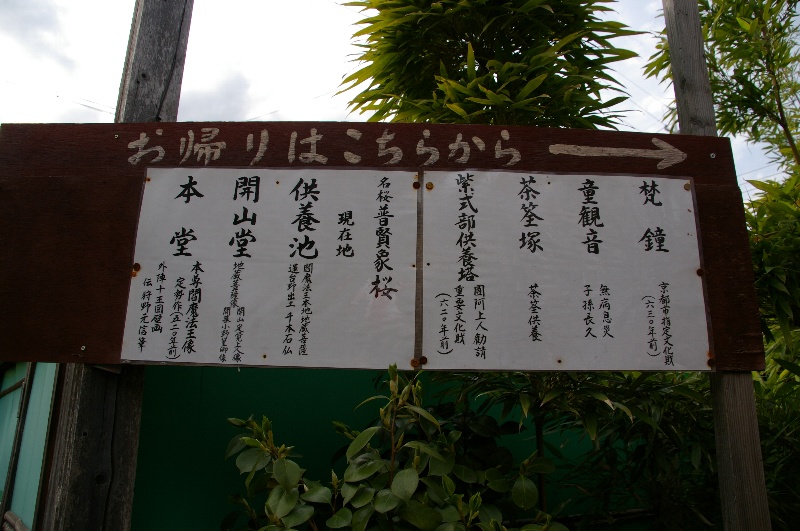 お帰りはこちらから
梵鐘
京都市指定文化財
(六三〇年前)
童観音
無病息災
子孫長久
茶筌塚
茶筌供養
紫式部供養塔
圓阿上人勧請
重要文化財
(六二〇年前)
名桜普賢象桜
現在地
供養池
閻魔法王本地地蔵菩薩
道台野出土千本石仏
開山堂
地蔵菩薩像
開山定覚上人像
開基小野篁卿像
本堂
本尊閻魔法王像
定勢作(五二〇年前)
外陣十王図壁画
伝狩野元信筆